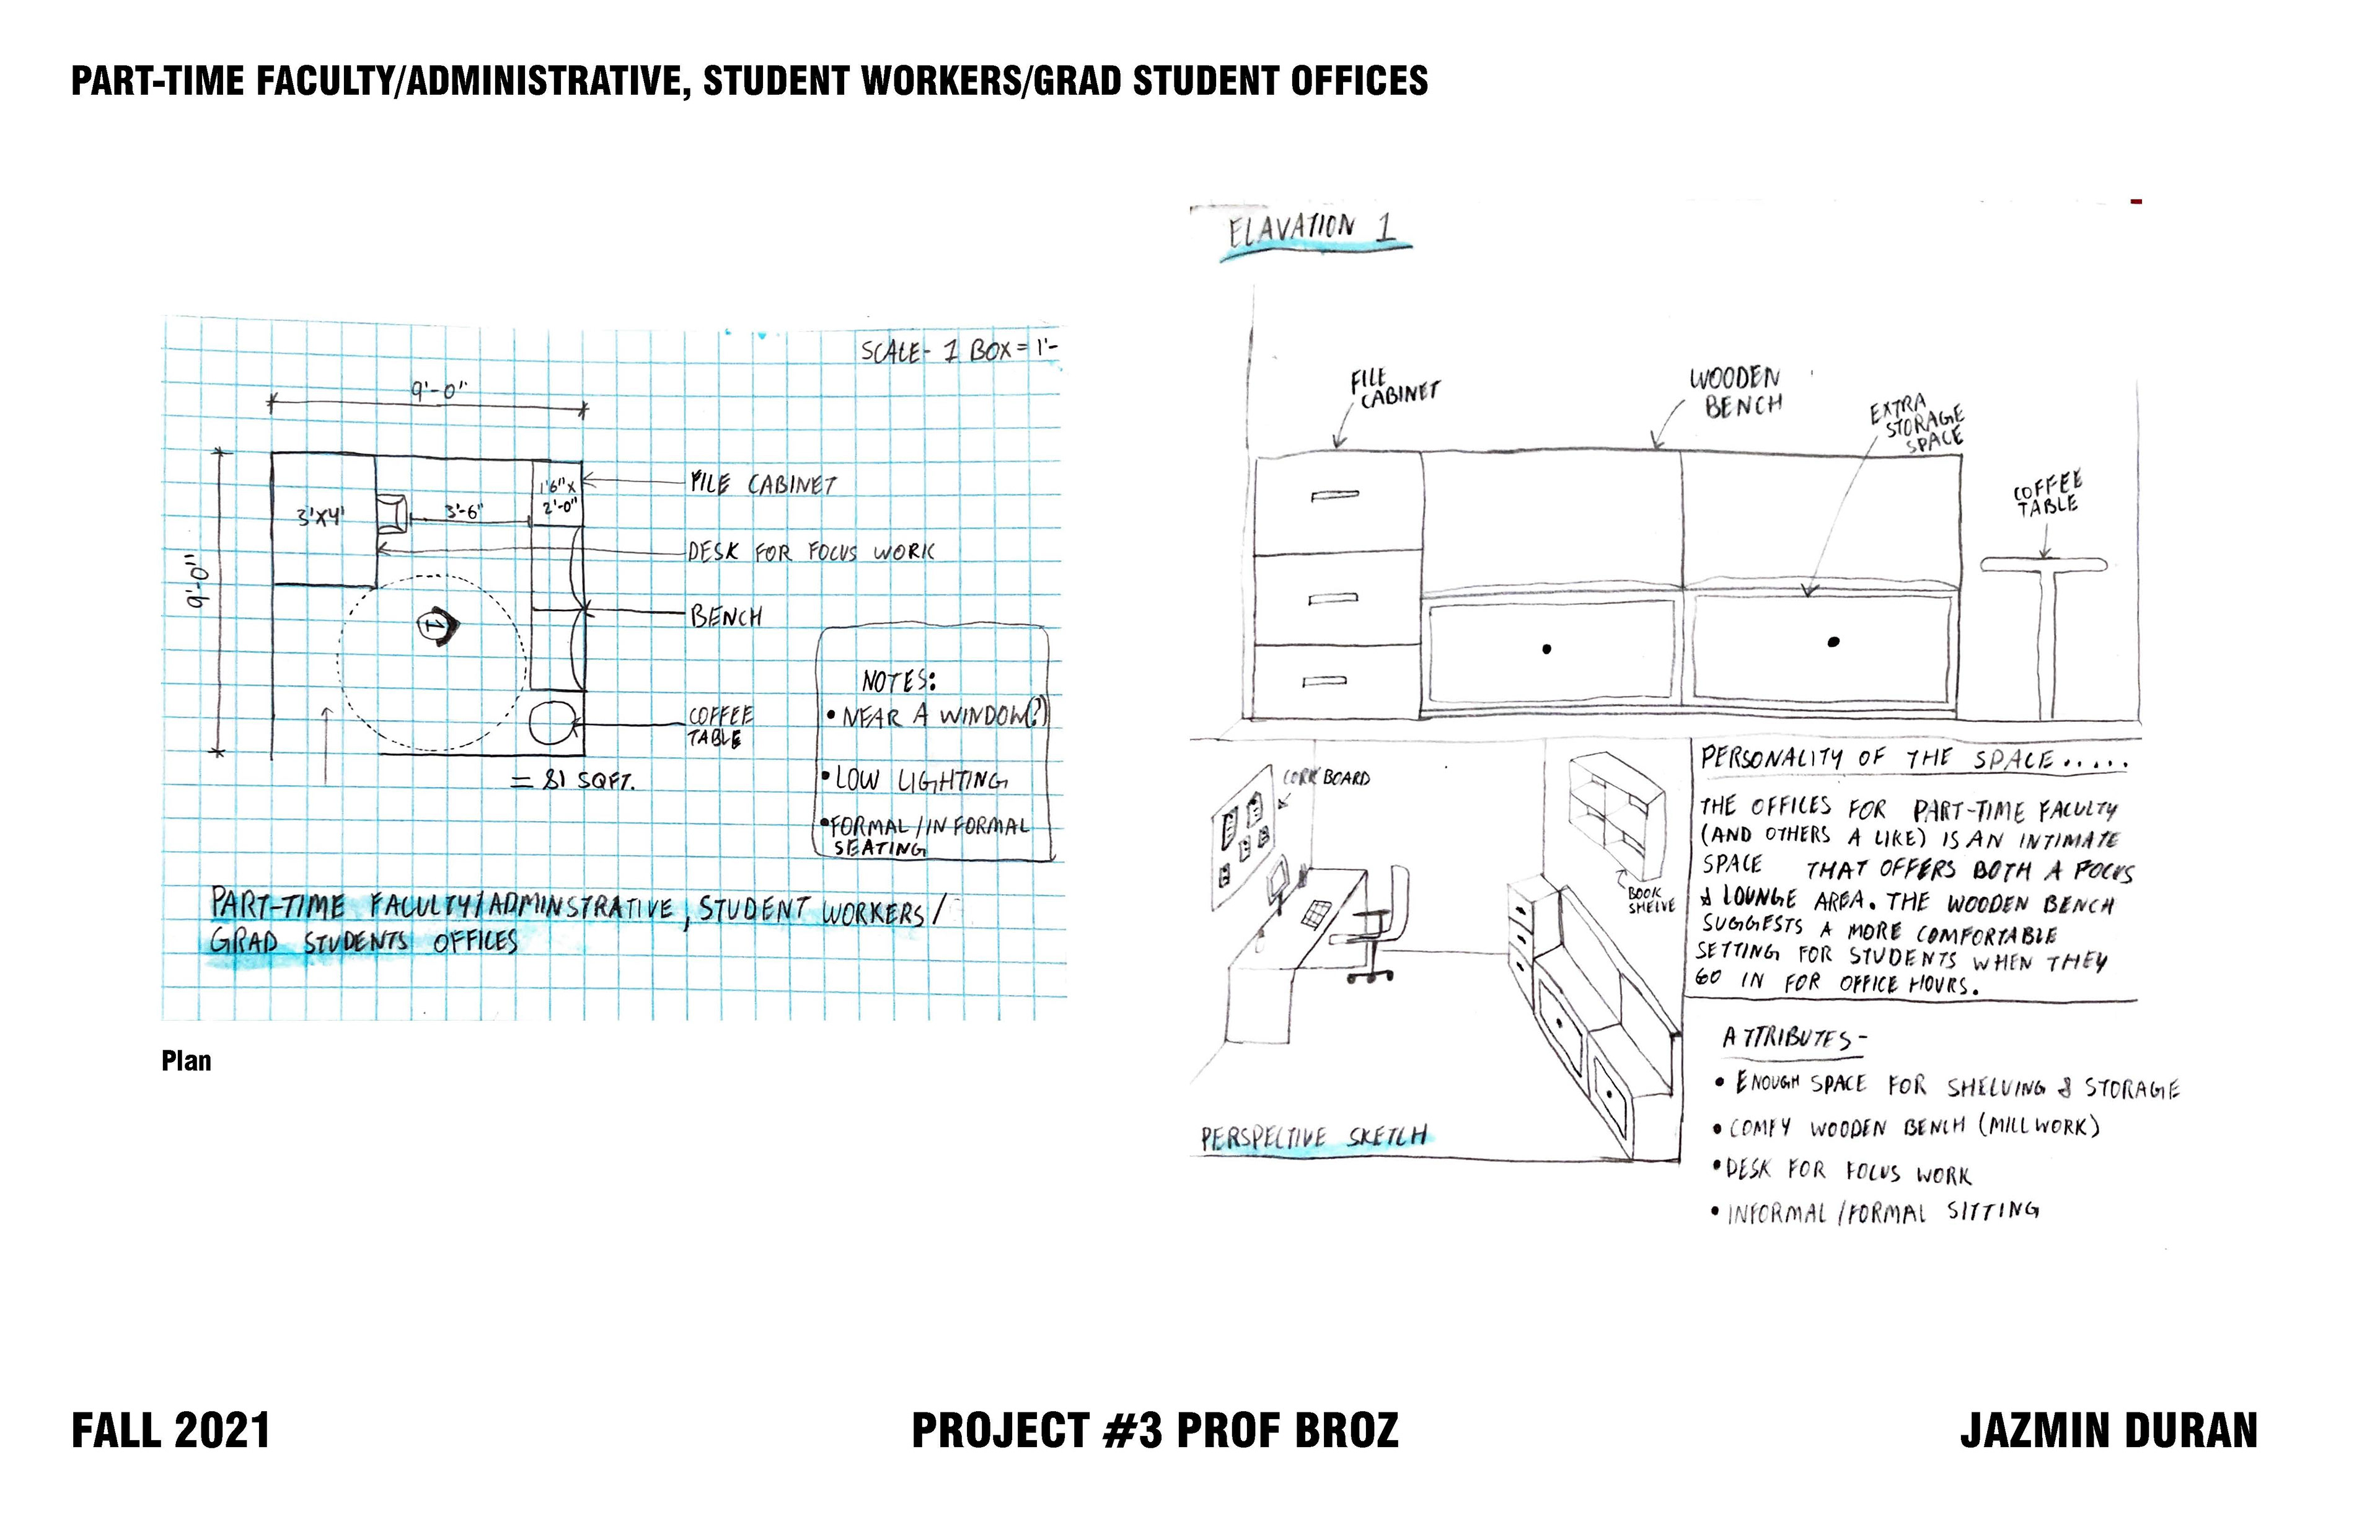 PART-TIME FACULTY/ADMINISTRATIVE, STUDENT WORKERS/GRAD STUDENT OFFICES
SCALE- 1 BOX = 1'-
9'-0"
9'-0"
3'X4'
3'-6"
1'6" X
2'-0"
FILE CABINET
DESK FOR FOCUS WORK
BENCH
COFFEE
TABLE
1
= 81 SQFT.
NOTES:
• NEAR A WINDOW(?)
• LOW LIGHTING
• FORMAL/INFORMAL
SEATING
PART-TIME FACULTY/ADMINSTRATIVE, STUDENT WORKERS/
GRAD STUDENTS OFFICES
Plan
ELAVATION 1
FILE
CABINET
WOODEN
BENCH
EXTRA
STORAGE
SPACE
COFFEE
TABLE
CORK BOARD
BOOK
SHELVE
PERSPECTIVE SKETCH
PERSONALITY OF THE SPACE.....
THE OFFICES FOR PART-TIME FACULTY
(AND OTHERS A LIKE) IS AN INTIMATE
SPACE THAT OFFERS BOTH A FOCUS
& LOUNGE AREA. THE WOODEN BENCH
SUGGESTS A MORE COMFORTABLE
SETTING FOR STUDENTS WHEN THEY
GO IN FOR OFFICE HOURS.
ATTRIBUTES-
• ENOUGH SPACE FOR SHELVING & STORAGE
• COMFY WOODEN BENCH (MILLWORK)
• DESK FOR FOCUS WORK
• INFORMAL/FORMAL SITTING
FALL 2021
PROJECT #3 PROF BROZ
JAZMIN DURAN